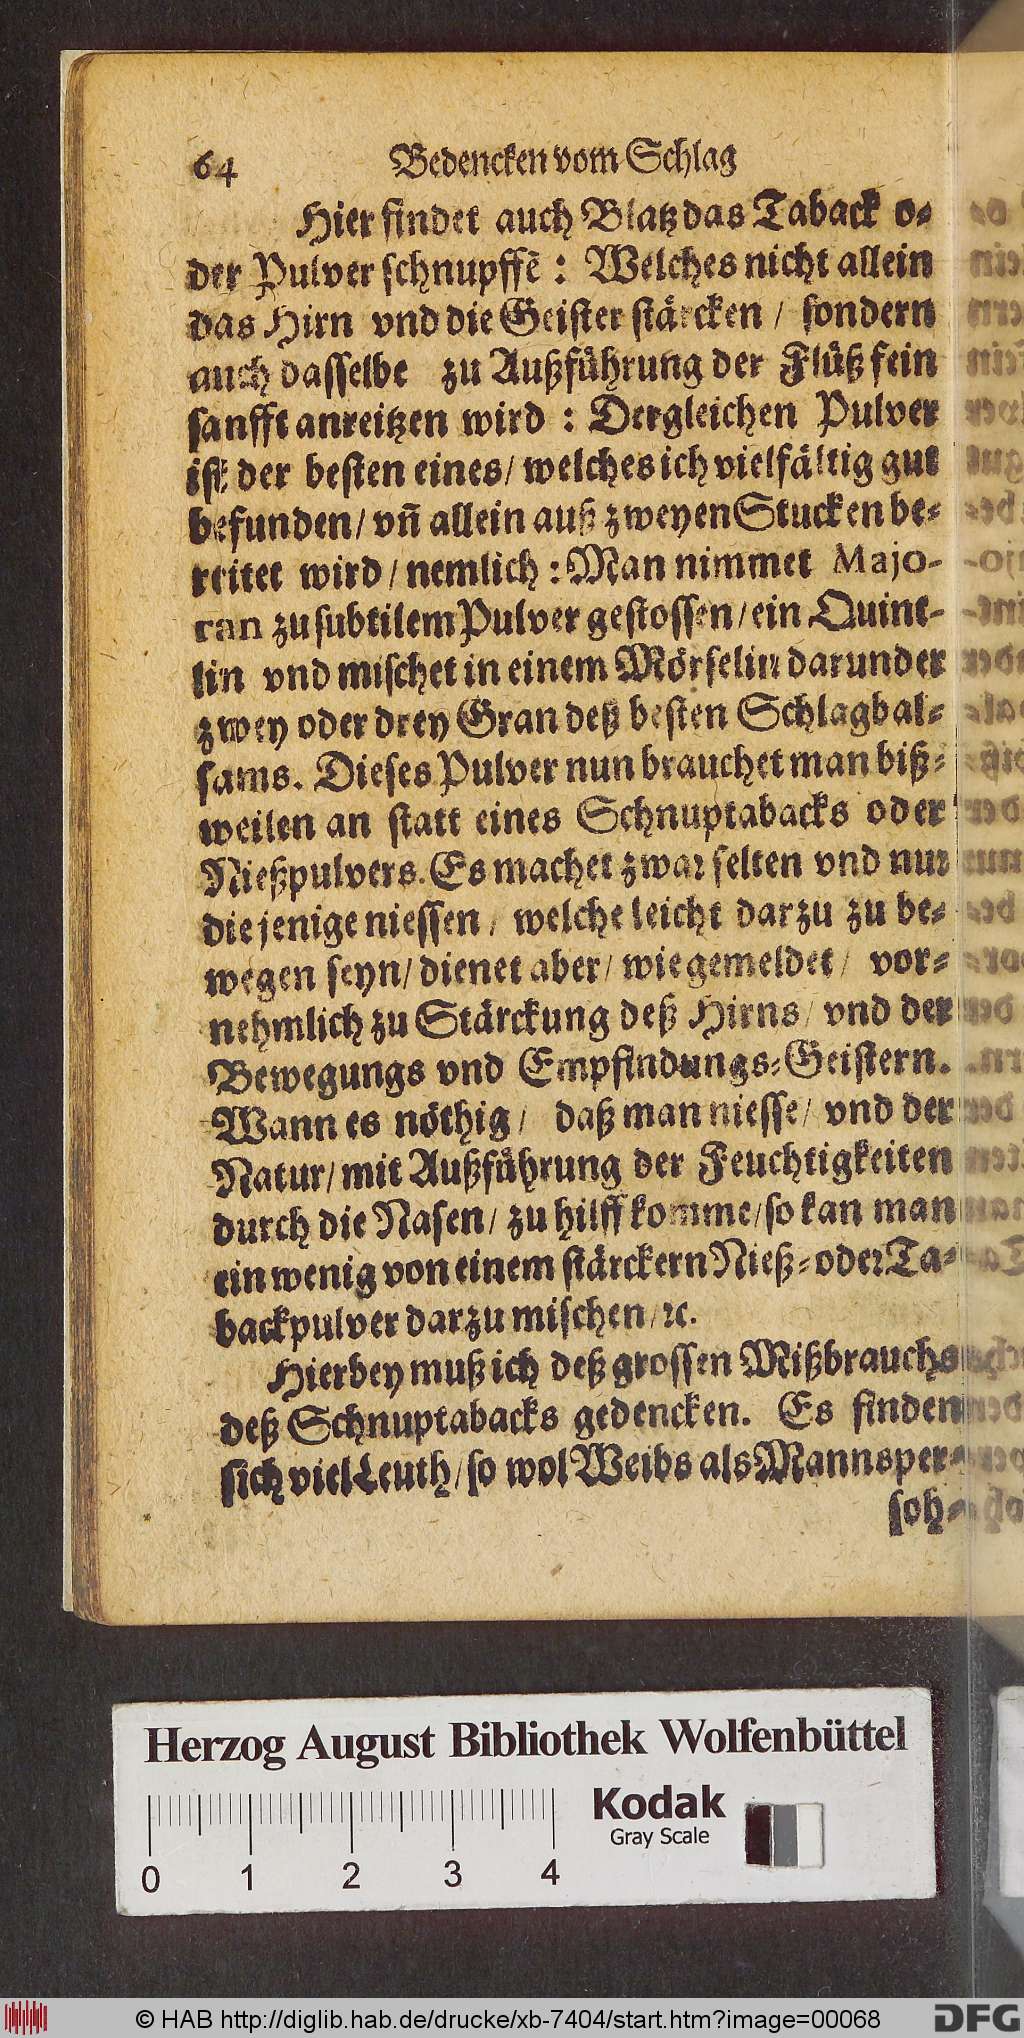 64 Bedencken vom Schlag
Hier findet auch Blatz das Taback o-
der Pulver schnupffẽ : Welches nicht allein
das Hirn vnd die Geister stärcken / sondern
auch dasselbe zu Außführung der Flüß fein
sanfft anreitzen wird : Dergleichen Pulver
ist der besten eines / welches ich vielfältig gut
befunden / vñ allein auß zweyen Stucken be-
reitet wird / nemlich : Man nimmet Majo-
ran zu subtilem Pulver gestossen / ein Quint-
lin vnd mischet in einem Mörselin darunder
zwey oder drey Gran deß besten Schlagbal-
sams. Dieses Pulver nun brauchet man biß-
weilen an statt eines Schnuptabacks oder
Nießpulvers. Es machet zwar selten vnd nur
die jenige niessen / welche leicht darzu zu be-
wegen seyn / dienet aber / wie gemeldet / vor-
nehmlich zu Stärckung deß Hirns / vnd der
Bewegungs vnd Empfindungs-Geistern.
Wann es nöthig / daß man niesse / vnd der
Natur / mit Außführung der Feuchtigkeiten
durch die Nasen / zu hilff komme / so kan man
ein wenig von einem stärckern Nieß- oder Ta-
backpulver darzu mischen / ꝛc.
Hierbey muß ich deß grossen Mißbrauchs
deß Schnuptabacks gedencken. Es finden
sich viel Leuth / so wol Weibs als Mannsper-
soh-
Herzog August Bibliothek Wolfenbüttel
Kodak
Gray Scale
0 1 2 3 4
© HAB http://diglib.hab.de/drucke/xb-7404/start.htm?image=00068
DFG